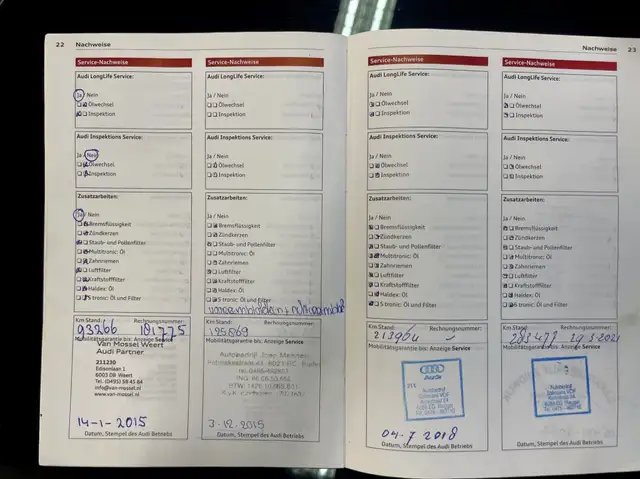 22 Nachweise
Service-Nachweise
Audi LongLife Service:
Ja / Nein
Ölwechsel
Inspektion
Audi Inspektions Service:
Ja / Nein
Ölwechsel
Inspektion
Zusatzarbeiten:
Ja / Nein
Bremsflüssigkeit
Zündkerzen
Staub- und Pollenfilter
Multitronic: Öl
Zahnriemen
Luftfilter
Kraftstofffilter
Haldex: Öl
S tronic: Öl und Filter
Km Stand: Rechnungsnummer:
93266 181775
Mobilitätsgarantie bis: Anzeige Service
Van Mossel Weert
Audi Partner
211230
Edisonlaan 1
6003 DB Weert
Tel. (0495) 58 45 84
info@van-mossel.nl
www.van-mossel.nl
14-1-2015
Datum, Stempel des Audi Betriebs
Service-Nachweise
Audi LongLife Service:
Ja / Nein
Ölwechsel
Inspektion
Audi Inspektions Service:
Ja / Nein
Ölwechsel
Inspektion
Zusatzarbeiten:
Ja / Nein
Bremsflüssigkeit
Zündkerzen
Staub- und Pollenfilter
Multitronic: Öl
Zahnriemen
Luftfilter
Kraftstofffilter
Haldex: Öl
S tronic: Öl und Filter
Km Stand: Rechnungsnummer:
Mobilitätsgarantie bis: Anzeige Service
Autobedrijf
3-12.2015
Datum, Stempel des Audi Betriebs
Nachweise 23
Service-Nachweise
Audi LongLife Service:
Ja / Nein
Ölwechsel
Inspektion
Audi Inspektions Service:
Ja / Nein
Ölwechsel
Inspektion
Zusatzarbeiten:
Ja / Nein
Bremsflüssigkeit
Zündkerzen
Staub- und Pollenfilter
Multitronic: Öl
Zahnriemen
Luftfilter
Kraftstofffilter
Haldex: Öl
S tronic: Öl und Filter
Km Stand: Rechnungsnummer:
213964 -
Mobilitätsgarantie bis: Anzeige Service
Audi
Autobedrijf
04-7 2018
Datum, Stempel des Audi Betriebs
Service-Nachweise
Audi LongLife Service:
Ja / Nein
Ölwechsel
Inspektion
Audi Inspektions Service:
Ja / Nein
Ölwechsel
Inspektion
Zusatzarbeiten:
Ja / Nein
Bremsflüssigkeit
Zündkerzen
Staub- und Pollenfilter
Multitronic: Öl
Zahnriemen
Luftfilter
Kraftstofffilter
Haldex: Öl
S tronic: Öl und Filter
Km Stand: Rechnungsnummer:
Mobilitätsgarantie bis: Anzeige Service
Autobedrijf
Datum, Stempel des Audi Betriebs